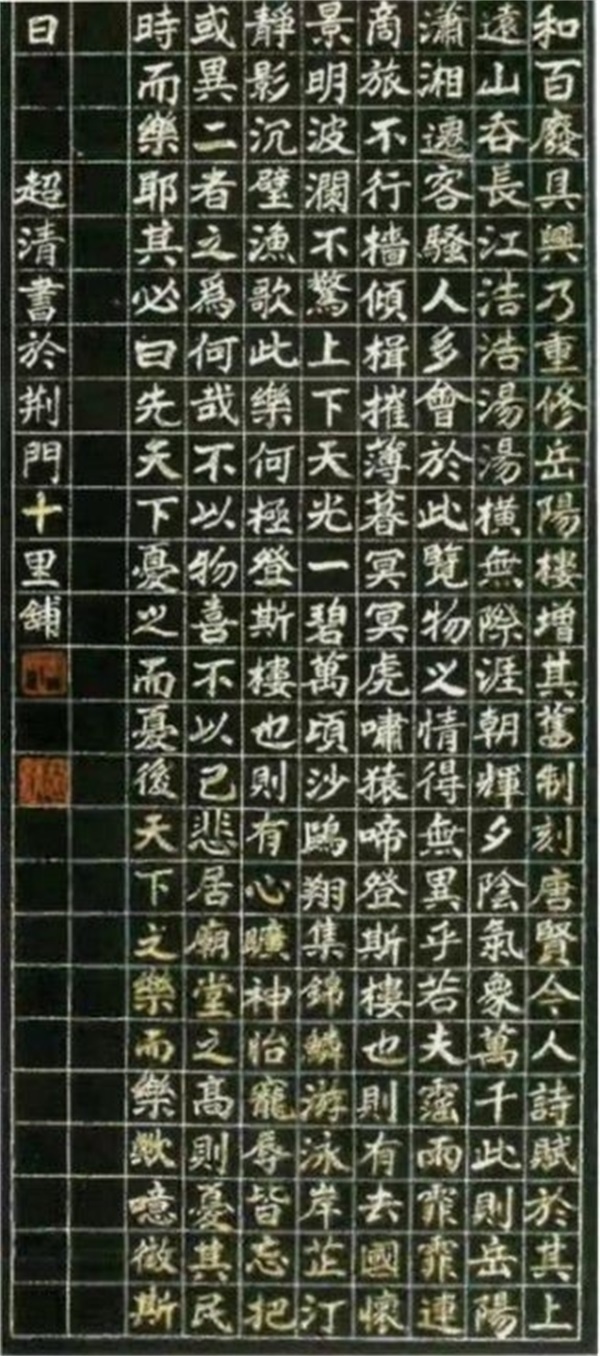 和百廢具興乃重修岳陽樓增其舊制刻唐賢今人詩賦於其上
遠山吞長江浩浩湯湯橫無際涯朝輝夕陰氣象萬千此則岳陽
瀟湘遷客騷人多會於此覽物之情得無異乎若夫霪雨霏霏連
商旅不行檣傾楫摧薄暮冥冥虎嘯猿啼登斯樓也則有去國懷
景明波瀾不驚上下天光一碧萬頃沙鷗翔集錦鱗游泳岸芷汀
靜影沉璧漁歌此樂何極登斯樓也則有心曠神怡寵辱皆忘把
或異二者之爲何哉不以物喜不以己悲居廟堂之高則憂其民
時而樂耶其必曰先天下憂之而憂後天下之樂而樂歟噫微斯
日 超清書於荆門十里舖